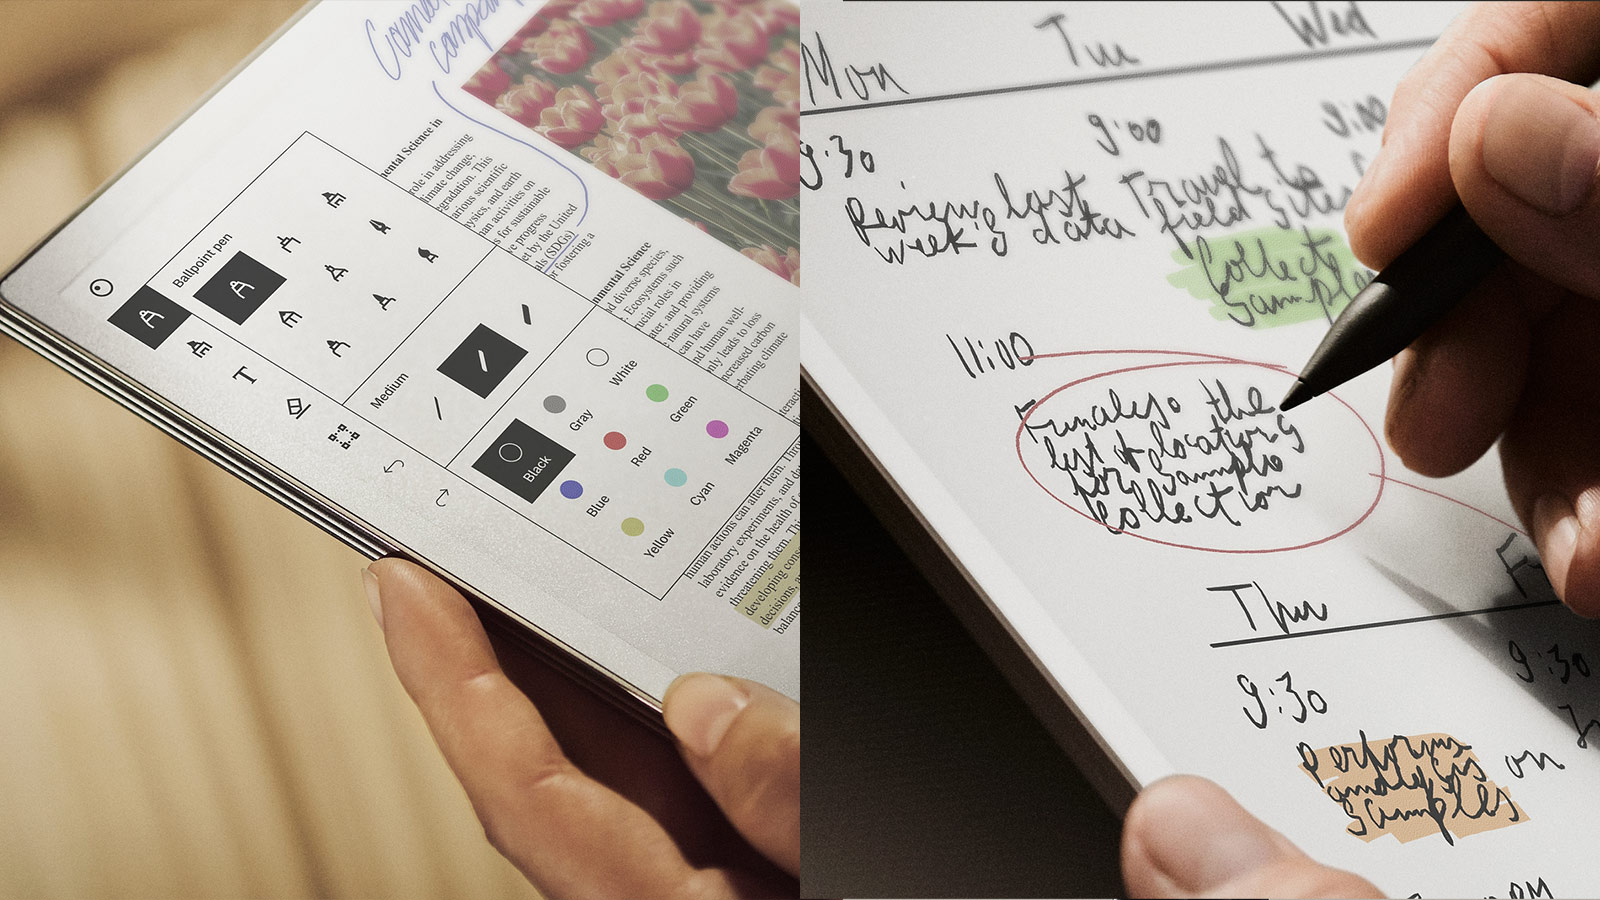 Ballpoint pen
Medium
Black
Gray
White
Blue
Red
Green
Yellow
Cyan
Magenta
mental Science in
role in addressing
climate change,
gradation. This
various scientific
ysics, and earth
an activities on
s for sustainable
ve progress
et by the United
als (SDGs)
or fostering a
nmental Science
d diverse species,
. Ecosystems such
rucial roles in
ater, and providing
natural systems
can have
nd human well-
nly leads to loss
ncreased carbon
rbating climate
human actions can alter them. Thr
laboratory experiments, and d
evidence on the health of
threatening them. Thi
developing cons
decisions, a
balanc
Mon
Tu
Wed
9:30
Review last
week's data
9:00
Travel to
field sites
Collecte
samples
9:00
11:00
the
list of locations
for sample
collection
Thu
9:30
Performs
analysis on
samples
9:30